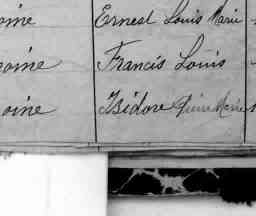 oine Ernest Louis Marie
oine Francis Louis
oine Isidore Pierre Marie